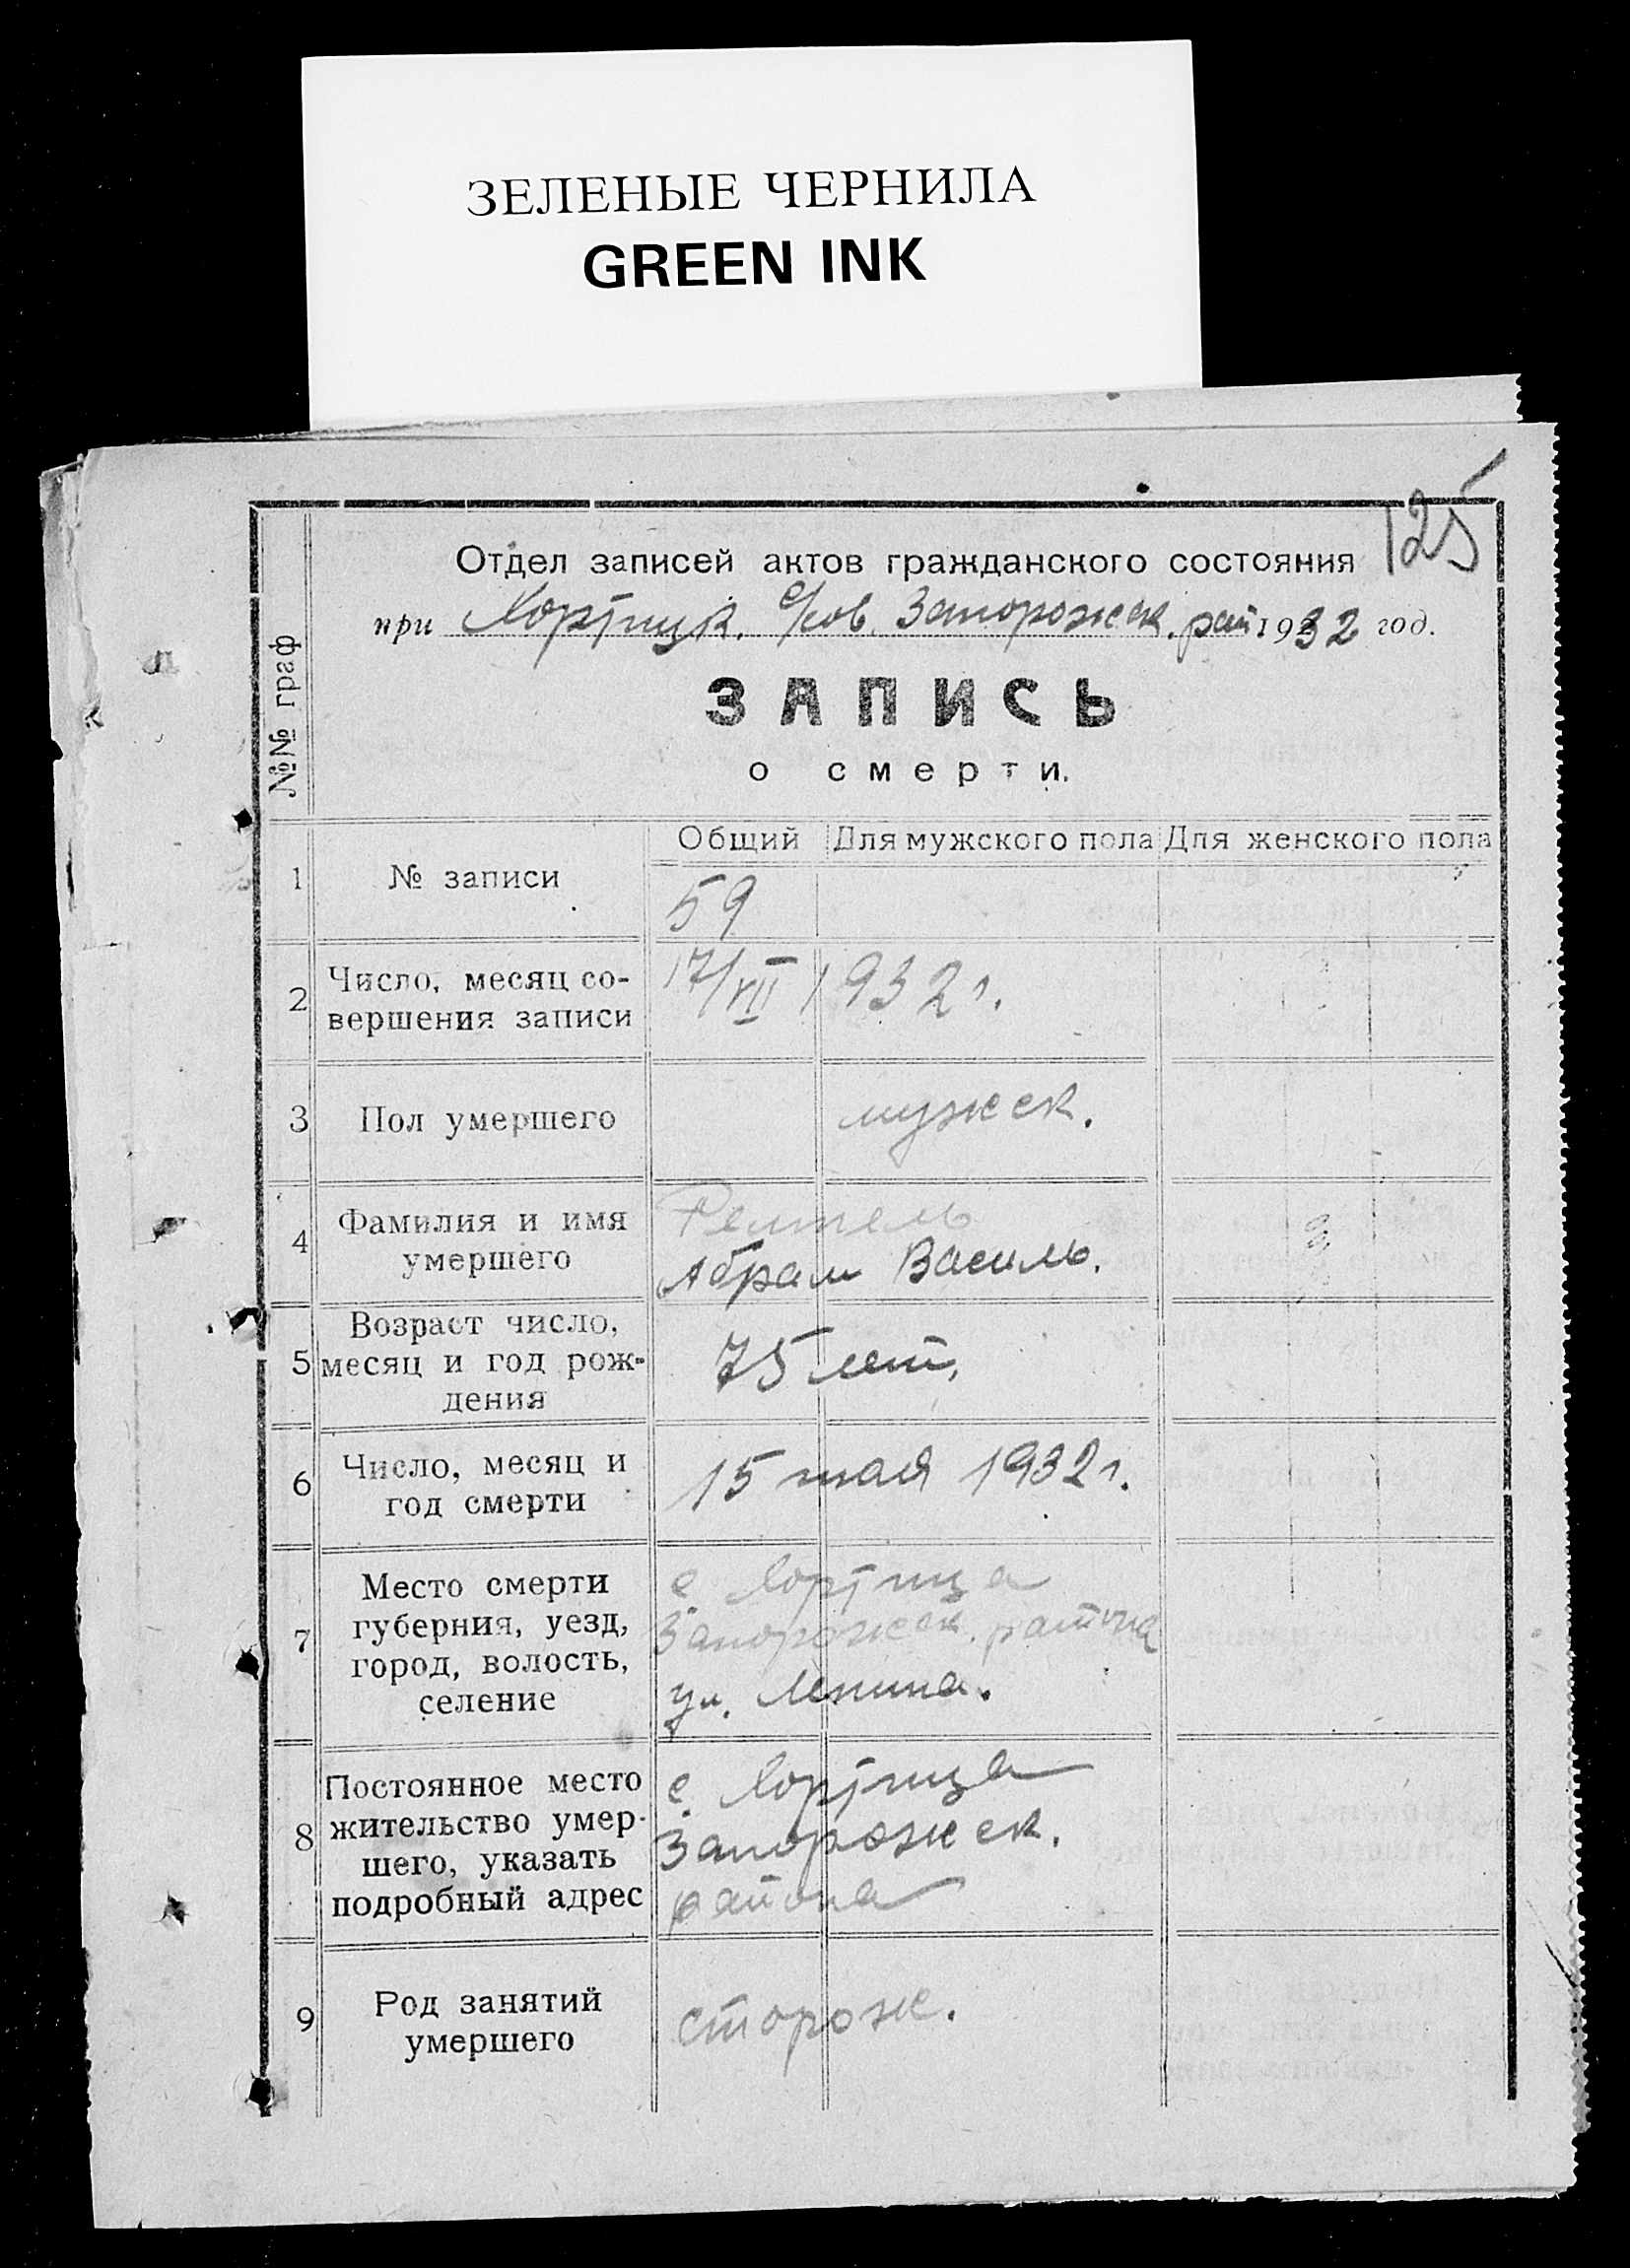 ЗЕЛЕНЫЕ ЧЕРНИЛА
GREEN INK
125
Отдел записей актов гражданского состояния
при Хортицк. с/сов. Запорожск. рай 1932 год.
№№ граф
ЗАПИСЬ
о смерти.
Общий Для мужского пола Для женского пола
1 № записи 59
2 Число, месяц со-
вершения записи 17/VII 1932 г.
3 Пол умершего мужеск.
4 Фамилия и имя
умершего
Абрам Василь.
5 Возраст число,
месяц и год рож-
дения 75 лет,
6 Число, месяц и
год смерти 15 мая 1932 г.
7 Место смерти
губерния, уезд,
город, волость,
селение
с. Хортица
Запорожск. района
ул. Ленина.
8 Постоянное место
жительство умер-
шего, указать
подробный адрес
с. Хортица
Запорожск.
района
9 Род занятий
умершего
сторож.